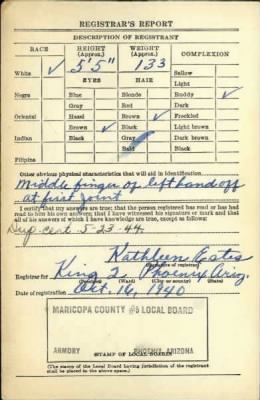 REGISTRAR'S REPORT
DESCRIPTION OF REGISTRANT
RACE HEIGHT (Approx.) WEIGHT (Approx.) COMPLEXION
5'5" 133
White ✓ Sallow
EYES HAIR Light
Negro Blue Blonde Ruddy ✓
Gray Red Dark
Oriental Hazel Brown Freckled
Brown ✓ Black ✓ Light brown
Indian Black Gray Dark brown
Bald Black
Filipino
Other obvious physical characteristics that will aid in identification
Middle finger of left hand off
at first joint
I certify that my answers are true; that the person registered has read or has had
read to him his own answers; that I have witnessed his signature or mark and that
all of his answers of which I have knowledge are true, except as follows:
Dup. cert. 5-23-44.
Kathleen Estes
Registrar for King 2 Phoenix Ariz.
(Precinct) (Ward) (City or county) (State)
Date of registration Oct. 16, 1940
MARICOPA COUNTY #5 LOCAL BOARD
ARMORY PHOENIX, ARIZONA
STAMP OF LOCAL BOARD
(The stamp of the Local Board having jurisdiction of the registrant
shall be placed in the above space.)